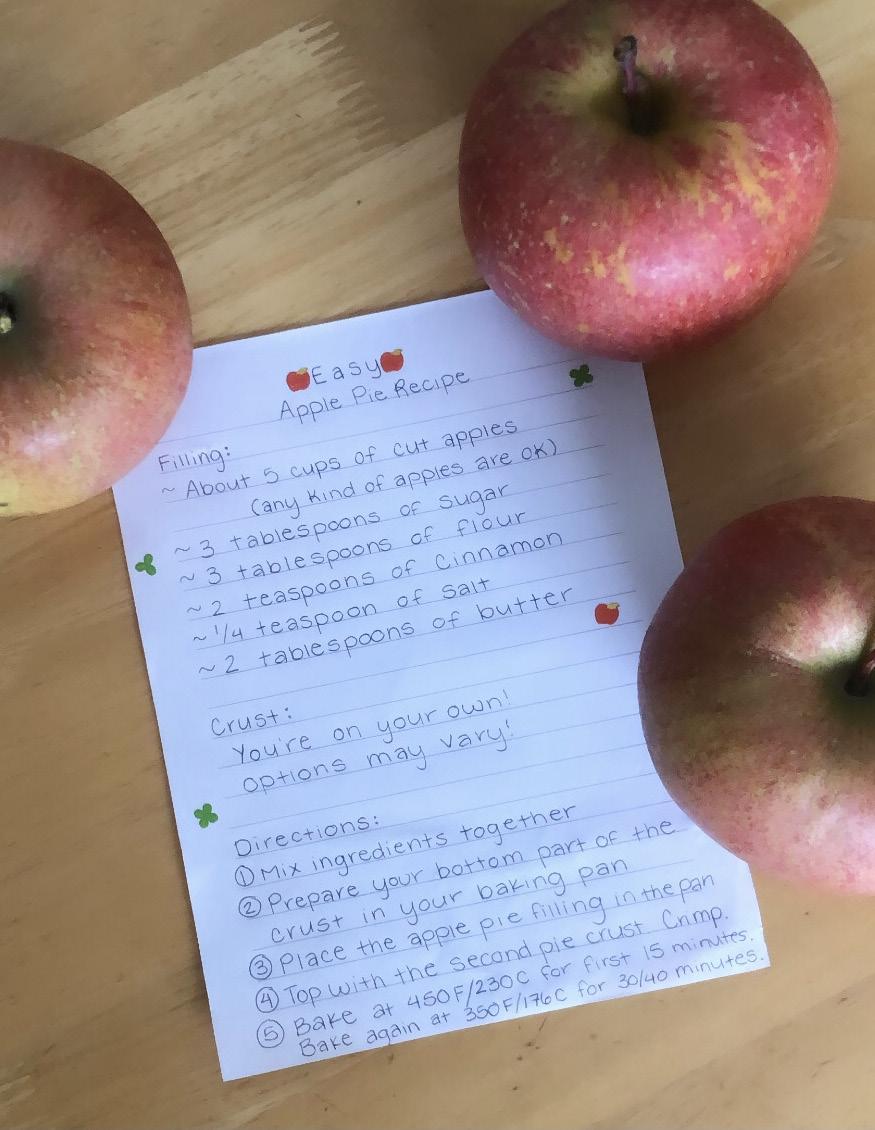 Easy
Apple Pie Recipe
Filling:
~ About 5 cups of cut apples
(any kind of apples are OK)
~ 3 tablespoons of sugar
~ 3 tablespoons of flour
~ 2 teaspoons of Cinnamon
~ 1/4 teaspoon of salt
~ 2 tablespoons of butter
Crust:
You're on your own!
options may vary!
Directions:
① Mix ingredients together
② Prepare your bottom part of the
crust in your baking pan
③ Place the apple pie filling in the pan
④ Top with the second pie crust Crimp.
⑤ Bake at 450F/230C for first 15 minutes.
Bake again at 350F/176C for 30/40 minutes.